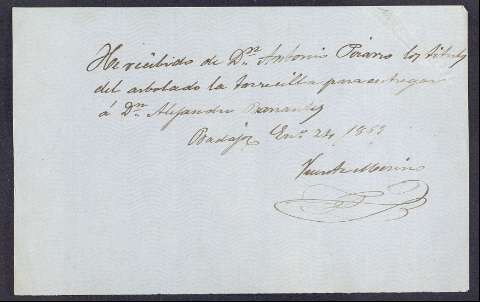 He recibido de Dⁿ. Antonio Pizarro los titulos
del arbolado la torrecilla para entregar
á Dⁿ. Alejandro
Badajoz En.º 24, 1863
Vicente Merino